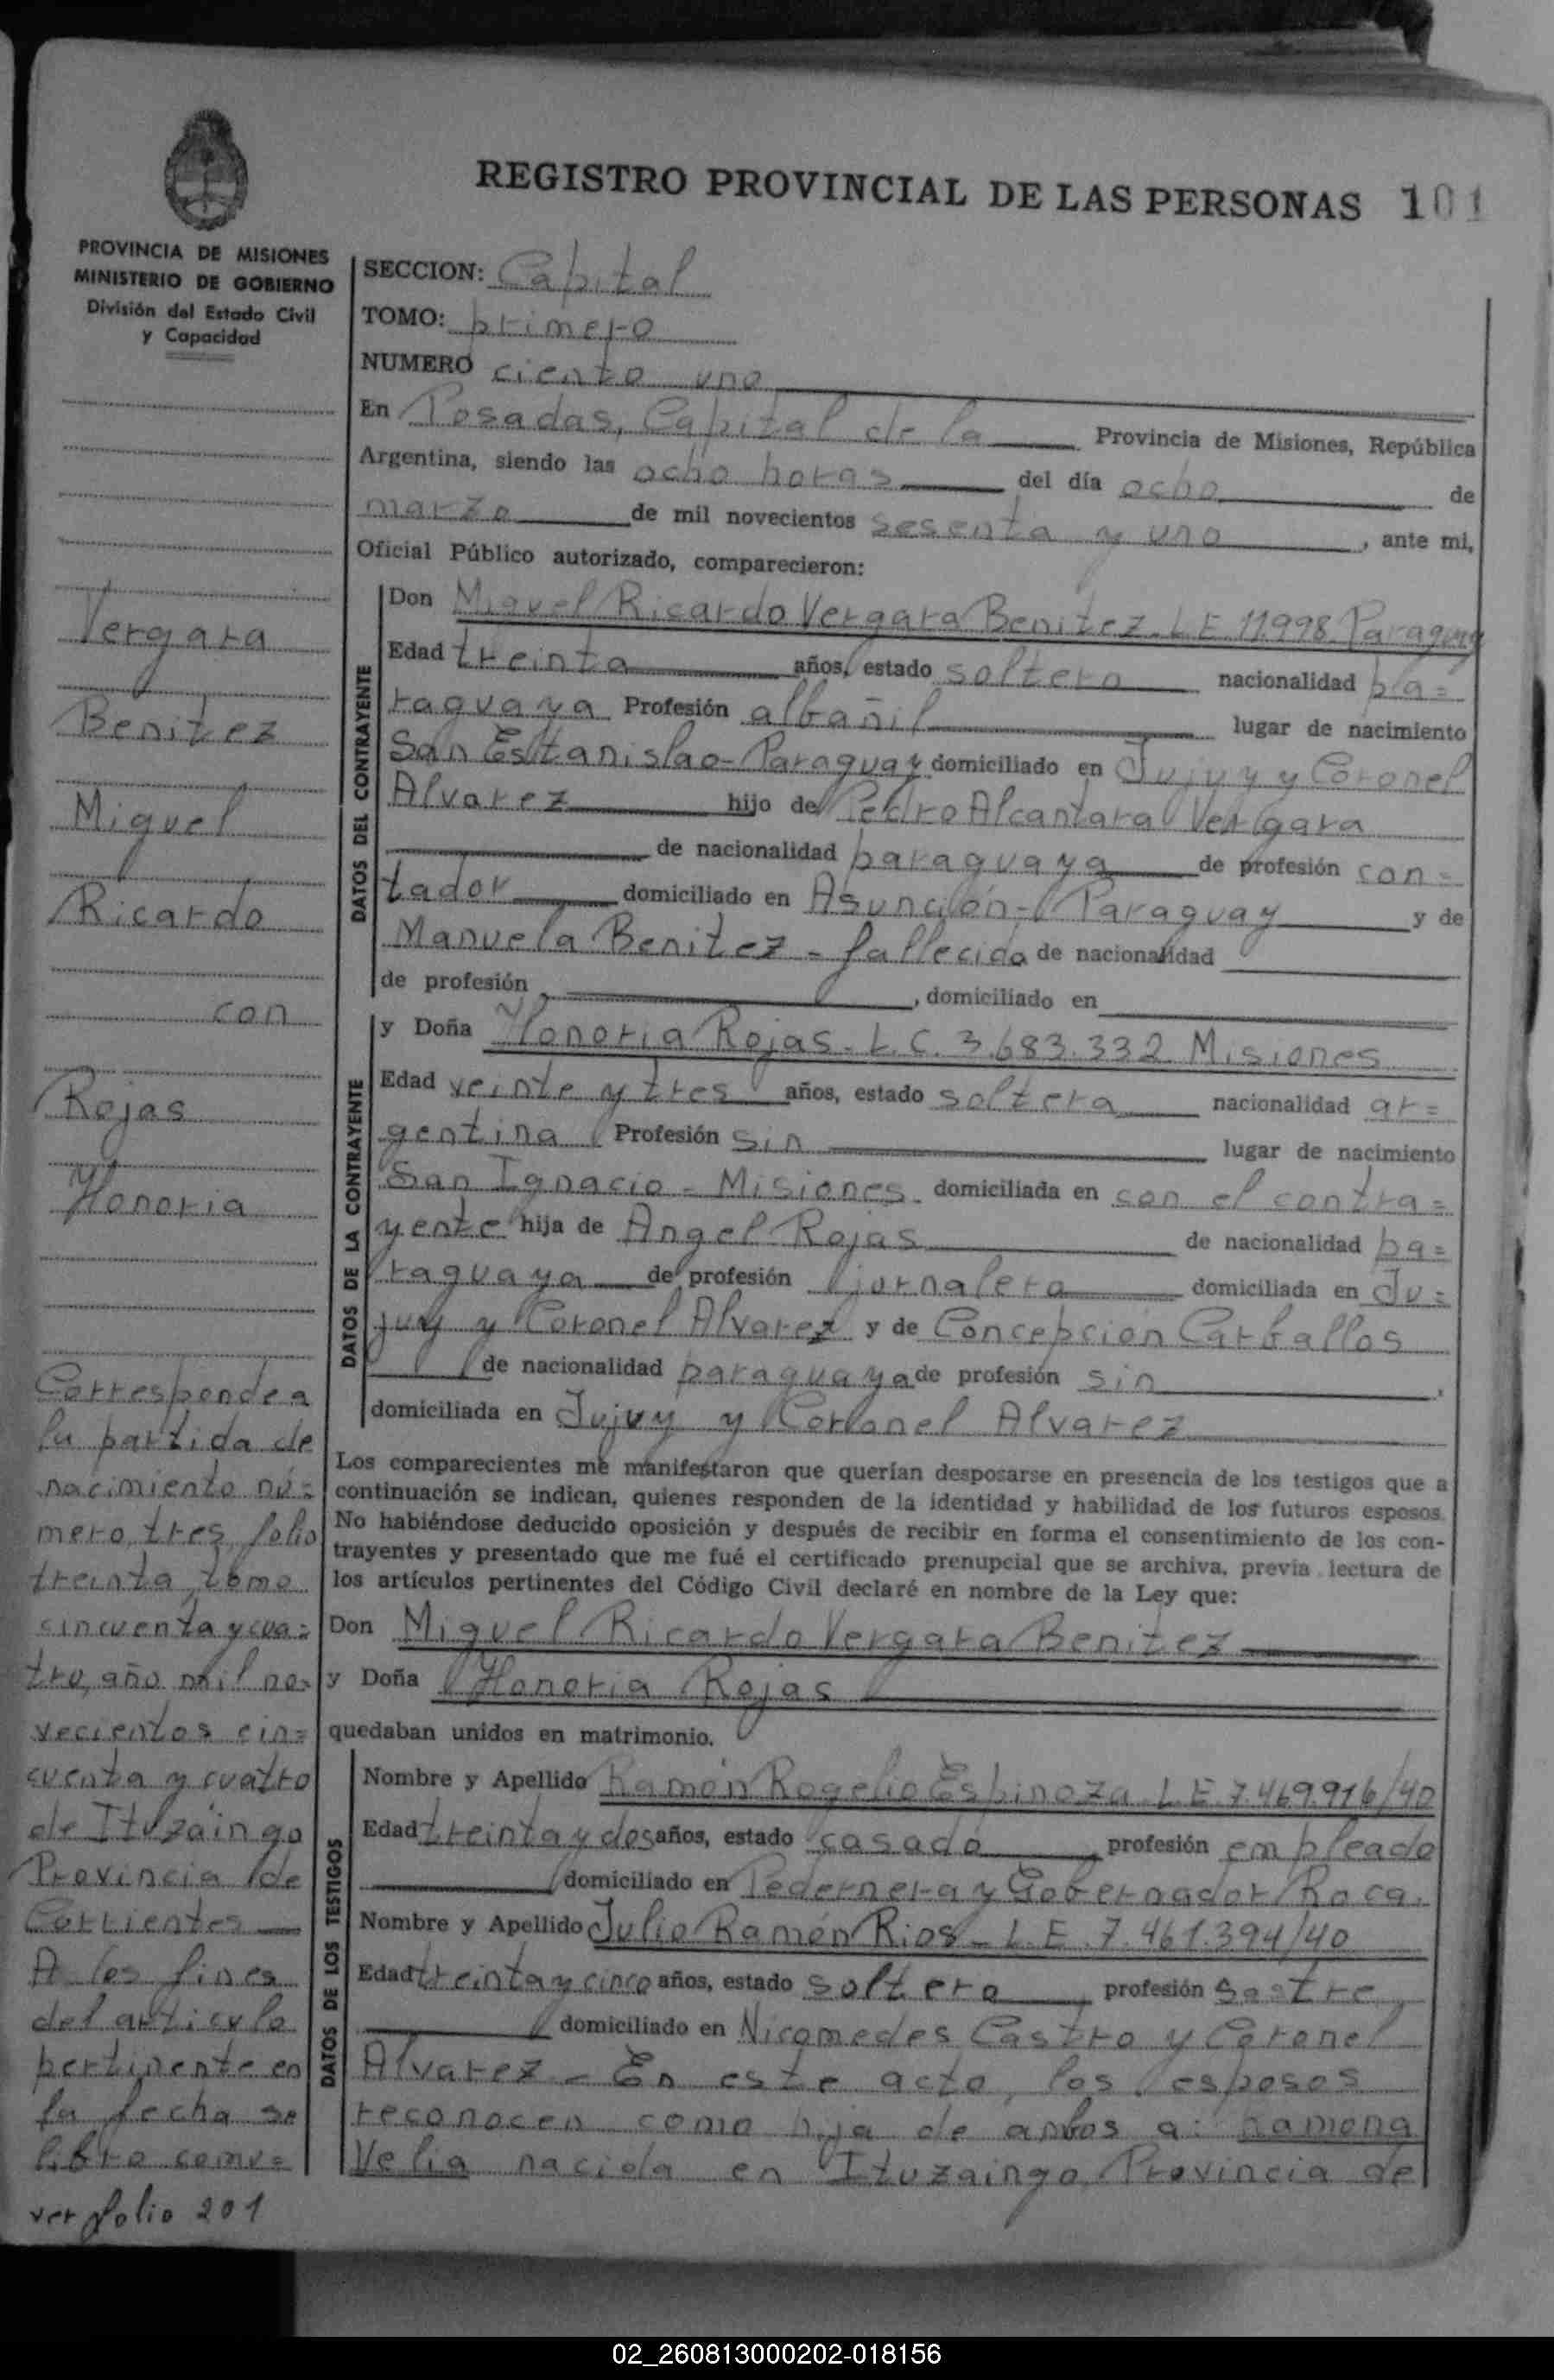 REGISTRO PROVINCIAL DE LAS PERSONAS 101
PROVINCIA DE MISIONES
MINISTERIO DE GOBIERNO
División del Estado Civil
y Capacidad
Vergara
Benitez
Miguel
Ricardo
con
Rojas
Honoria
Corresponde a
la partida de
nacimiento nú=
mero, tres, folio
treinta, tomo
cincuenta y cua=
tro, año mil no=
vecientos cin=
cuenta y cuatro
de Ituzaingo
Provincia de
Corrientes
A los fines
del articulo
pertinente en
la fecha se
libro comu=
ver folio 201
SECCION: Capital
TOMO: primero
NUMERO ciento uno
En Posadas, Capital de la Provincia de Misiones, República
Argentina, siendo las ocho horas del día ocho de
marzo de mil novecientos sesenta y uno, ante mi,
Oficial Público autorizado, comparecieron:
DATOS DEL CONTRAYENTE
Don Miguel Ricardo Vergara Benitez. L E 11.998. Paraguay
Edad treinta años, estado soltero nacionalidad pa=
raguaya Profesión albañil lugar de nacimiento
San Estanislao - Paraguay domiciliado en Jujuy y Coronel
Alvarez hijo de Pedro Alcantara Vergara
de nacionalidad paraguaya de profesión con=
tador domiciliado en Asunción - Paraguay y de
Manuela Benitez - fallecida de nacionalidad
de profesión , domiciliado en
DATOS DE LA CONTRAYENTE
y Doña Honoria Rojas - L. C. 3.683.332 Misiones
Edad veinte y tres años, estado soltera nacionalidad ar=
gentina Profesión sin lugar de nacimiento
San Ignacio - Misiones domiciliada en con el contra=
yente hija de Angel Rojas de nacionalidad pa=
raguaya de profesión jornalero domiciliada en Ju=
juy y Coronel Alvarez y de Concepción Carballos
de nacionalidad paraguaya de profesión sin ,
domiciliada en Jujuy y Coronel Alvarez
Los comparecientes me manifestaron que querían desposarse en presencia de los testigos que a
continuación se indican, quienes responden de la identidad y habilidad de los futuros esposos.
No habiéndose deducido oposición y después de recibir en forma el consentimiento de los con-
trayentes y presentado que me fué el certificado prenupcial que se archiva, previa lectura de
los artículos pertinentes del Código Civil declaré en nombre de la Ley que:
Don Miguel Ricardo Vergara Benitez
y Doña Honoria Rojas
quedaban unidos en matrimonio.
DATOS DE LOS TESTIGOS
Nombre y Apellido Ramón Rogelio Espinoza. L. E. 7.469.916/40
Edad treinta y dos años, estado casado, profesión empleado
domiciliado en Pedernera y Gobernador Roca.
Nombre y Apellido Julio Ramón Rios - L. E. 7.461.394/40
Edad treinta y cinco años, estado soltero, profesión Sastre
domiciliado en Nicomedes Castro y Coronel
Alvarez - En este acto, los esposos
reconocen como hija de ambos a: Ramona
Velia nacida en Ituzaingo, Provincia de
02_260813000202-018156